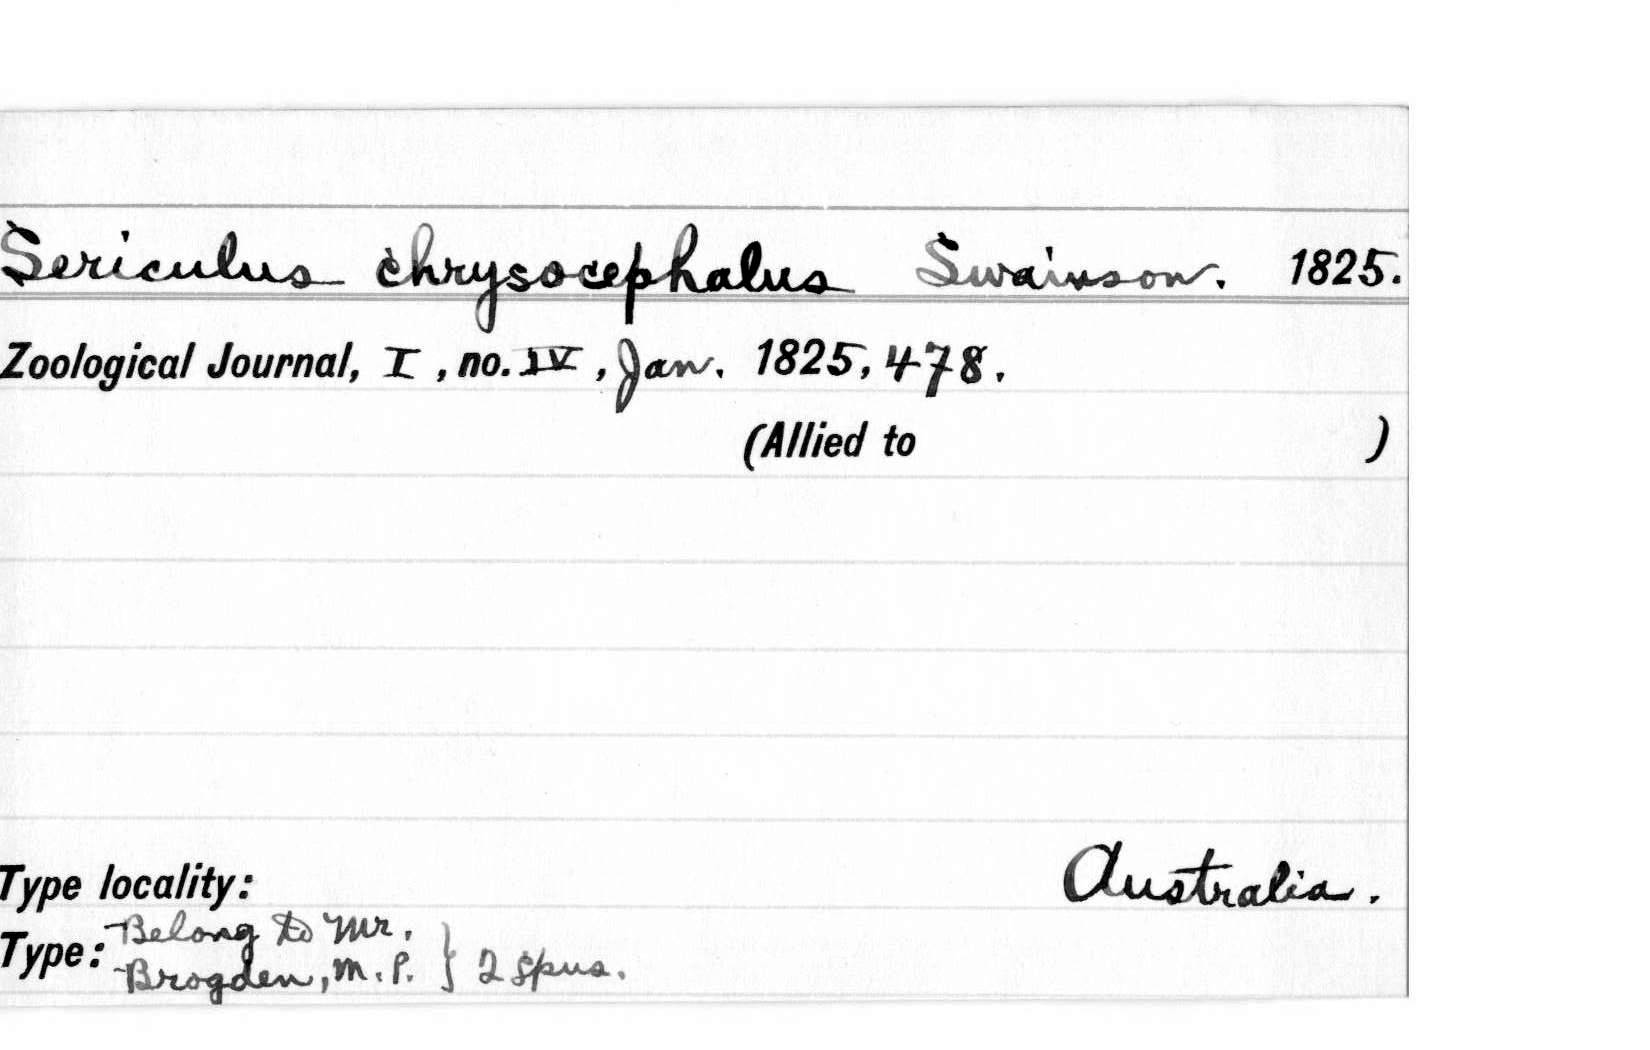 Sericulus chrysocephalus Swainson. 1825.
Zoological Journal, I, no. IV, Jan. 1825, 478.
(Allied to )
Type locality: Australia.
Type: Belong to Mr.
Brogden, M.P. } 2 spns.